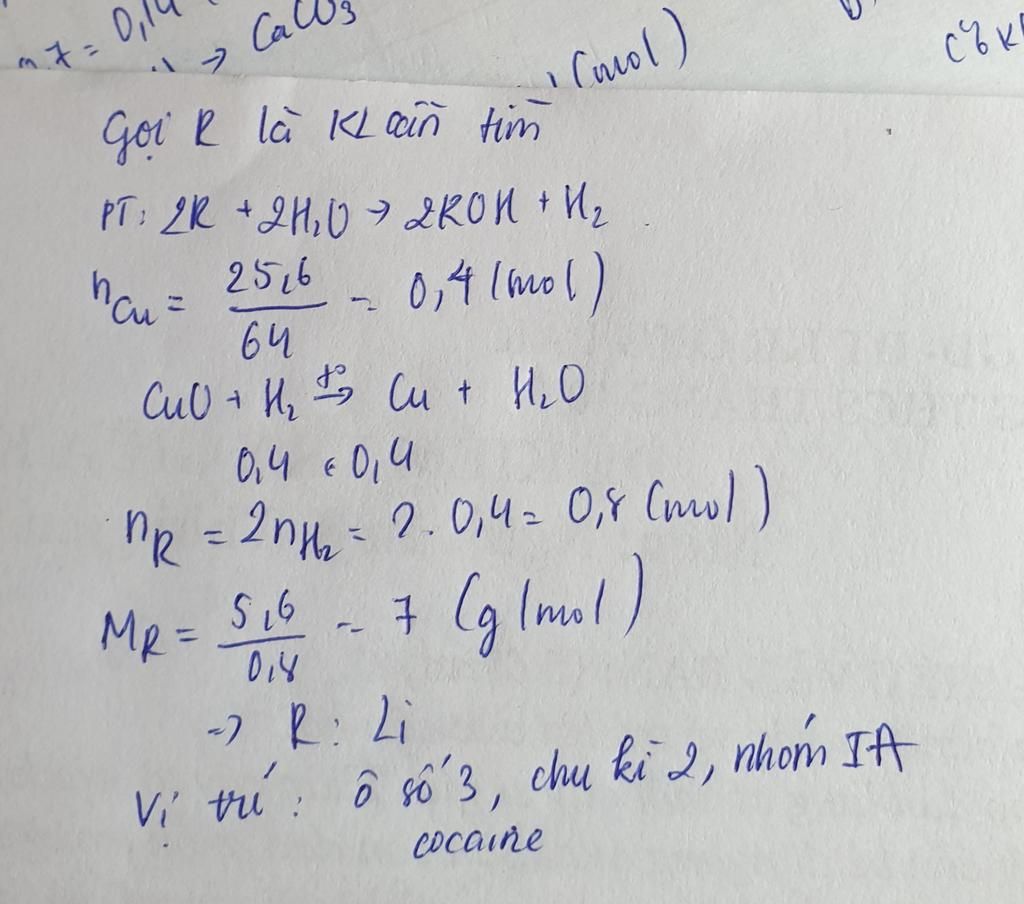 m.x = 0,14
→ CaCO3
(mol)
Gọi R là KL cần tìm
PT: 2R + 2H2O → 2ROH + H2
nCu = 25,6 / 64 = 0,4 (mol)
CuO + H2 t°→ Cu + H2O
0,4 ← 0,4
nR = 2nH2 = 2. 0,4 = 0,8 (mol)
MR = 5,6 / 0,8 = 7 (g/mol)
=> R: Li
Vị trí: ô số 3, chu kì 2, nhóm IA
cocaine